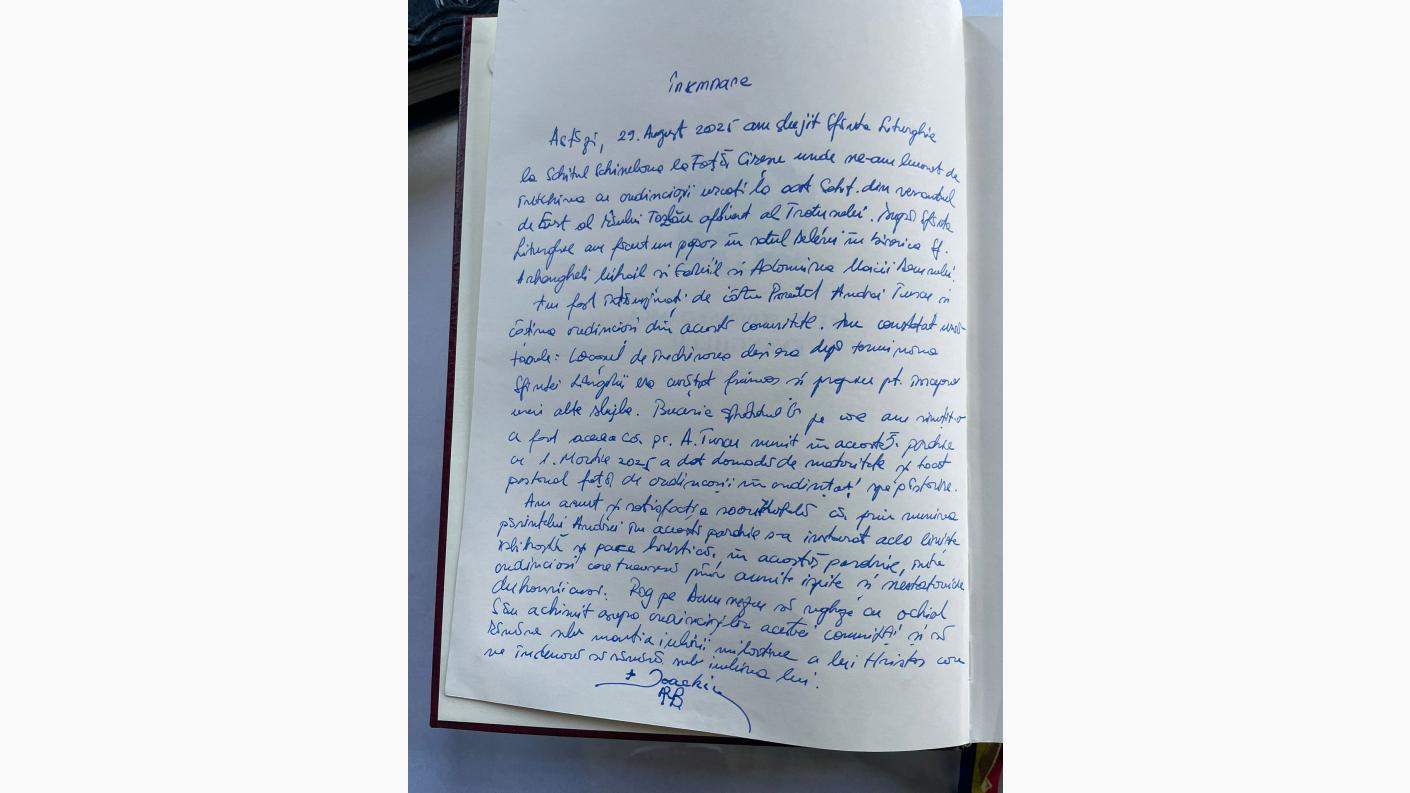 Însemnare
Astăzi, 29. August 2025 am slujit Sfânta Liturghie
la Schitul la Cisene unde ne-am bucurat de
cu urcați la acest Schit. din versantul
de Est al râului Tazlău afluent al Trotusului. După Sfânta
Liturghie am făcut un popas în satul în biserica Sf.
Arhangheli Mihail si Gavriil si Adormirea Maicii Domnului.
Am fost de către Părintele Andrei si
câțiva credinciosi din acestă comunitate. Am constatat urmă-
toarele: Locasul de închinarea desi era după terminarea
Sfintei Liturghii era curățat frumos si pregatit pt. începerea
unei alte slujbe. Bucuria pe care am simțit-o
a fost aceea că pr. A. numit în această parohie
cu 1. Martie 2025 a dat dovadă de maturitate și tact
pastoral față de credinciosii încredințați spre păstorire.
Am avut și satisfacția că prin numirea
părintelui Andrei în acestă parohie s-a instaurat acea liniste
si pace hristică, în această parohie, între
credinciosi care traversează prin anumite ispite si
duhovnicesti. Rog pe Dumnezeu să vegheze cu ochiul
Său asupra credincioșilor acestei comunități și să
rămâna sub mantia iubirii milostive a lui Hristos care
ne îndeamnă să rămână sub iubirea lui.
+ Ioachim